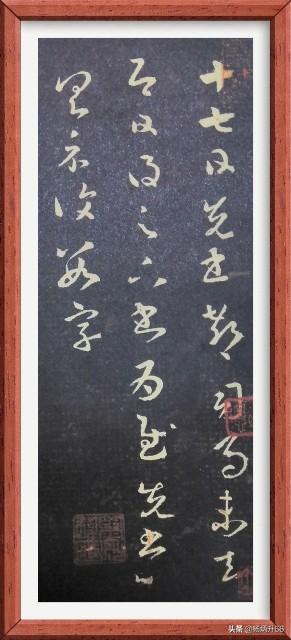 十七日先書郗司馬未去
即日得足下書為慰先書以
具示復數字
头条 @杨炳升66